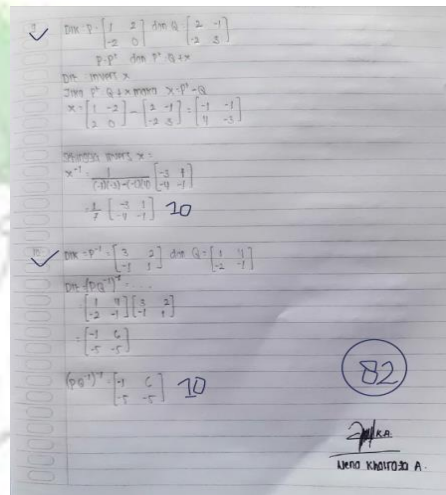 9 Dik P = [1 2 -2 0] dan Q [2 -1 -2 3]
P = Pᵗ dan Pᵗ = Q + x
Dit invers x
Jika Pᵗ Q + x maka x = Pᵗ - Q
x = [1 -2 2 0] - [2 -1 -2 3] = [-1 -1 4 -3]
Sehingga invers x =
x⁻¹ = 1 / (-1)(-3) - (-1)(4) [-3 1 -4 -1]
= 1/7 [-3 1 -4 -1] 10
10 Dik = P⁻¹ = [3 2 -1 1] dan Q = [1 4 -2 -1]
Dit = (PQ⁻¹)⁻¹ = ...
[1 4 -2 -1] [3 2 -1 1]
= [-1 6 -5 -5]
(PQ⁻¹)⁻¹ = [-1 6 -5 -5] 10
82
K.A.
A.